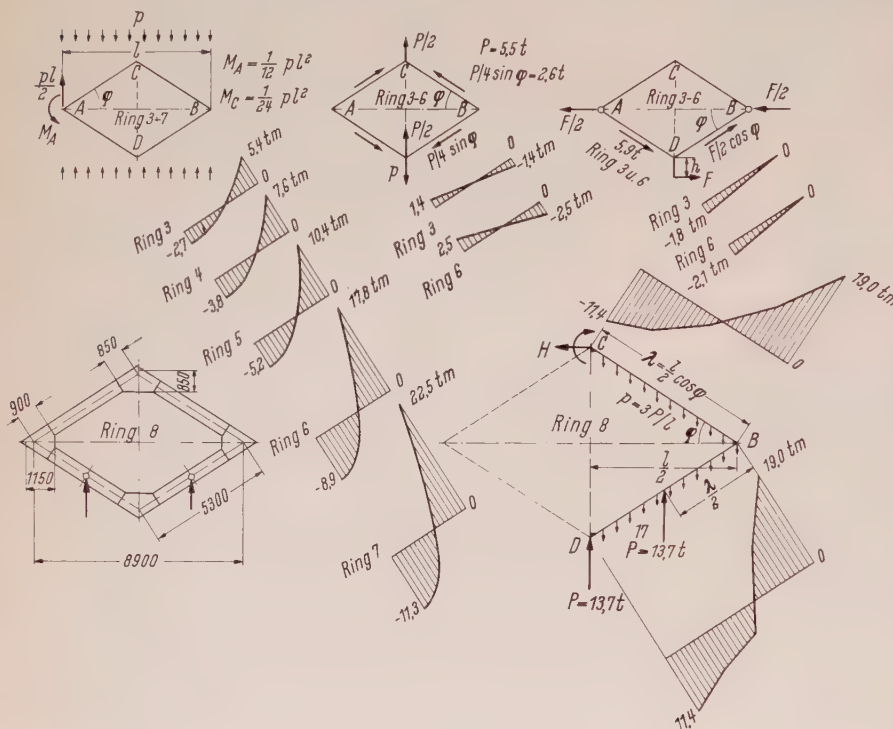 p
l
pl/2
M_A
A
φ
C
Ring 3÷7
B
D
M_A = 1/12 pl²
M_C = 1/24 pl²
P/2
C
A
Ring 3-6
φ
B
P/2
P/4 sin φ
P
P = 5,5 t
P/4 sin φ = 2,6 t
C
A
Ring 3-6
B
φ
D
F/2
F/2
5,9 t
Ring 3 u. 6
F/2 cos φ
h
F
5,4 tm
0
Ring 3
-2,7
7,6 tm
0
Ring 4
-3,8
10,4 tm
0
Ring 5
-5,2
17,8 tm
0
Ring 6
-8,9
22,5 tm
0
Ring 7
-11,3
0
-1,4 tm
1,4
Ring 3
-2,5 tm
2,5
Ring 6
0
Ring 3
-1,8 tm
0
Ring 6
-2,1 tm
850
850
900
Ring 8
1150
5300
8900
-11,4
19,0 tm
0
H
C
λ = l/2 cos φ
p = 3 P/l
Ring 8
φ
B
l/2
λ/2
D
17
P = 13,7 t
P = 13,7 t
19,0 tm
0
11,4